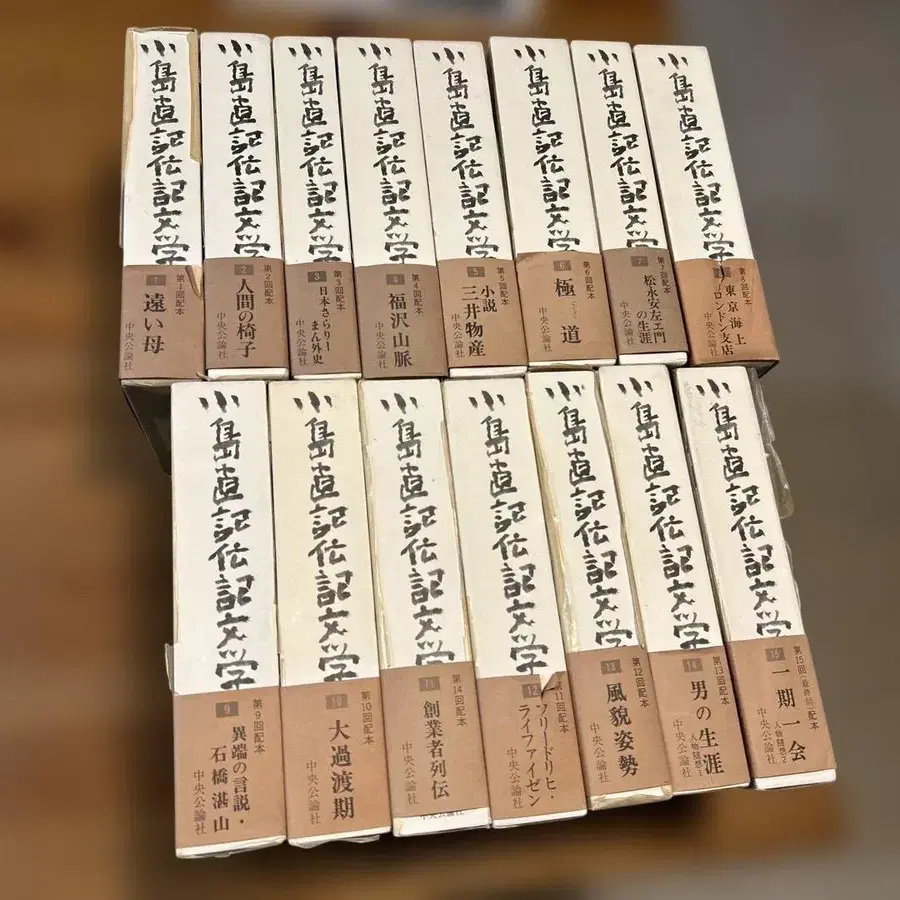 小島直記伝記文学
1
第1回配本
遠い母
中央公論社
小島直記伝記文学
2
第2回配本
人間の椅子
中央公論社
小島直記伝記文学
3
第3回配本
日本さらりー
まん外史
中央公論社
小島直記伝記文学
4
第4回配本
福沢山脈
中央公論社
小島直記伝記文学
5
第5回配本
小説
三井物産
中央公論社
小島直記伝記文学
6
第6回配本
極道
中央公論社
小島直記伝記文学
7
第7回配本
松永安左エ門
の生涯
中央公論社
小島直記伝記文学
第8回配本
東京海上
ロンドン支店
中央公論社
小島直記伝記文学
9
第9回配本
異端の言説・
石橋湛山
中央公論社
小島直記伝記文学
10
第10回配本
大過渡期
中央公論社
小島直記伝記文学
11
第14回配本
創業者列伝
中央公論社
小島直記伝記文学
12
第11回配本
リードリヒ・
ライファイゼン
中央公論社
小島直記伝記文学
13
第12回配本
風貌姿勢
中央公論社
小島直記伝記文学
14
第13回配本
男の生涯
人物随想1
中央公論社
小島直記伝記文学
15
第15回(最終回)配本
一期一会
人物随想2
中央公論社